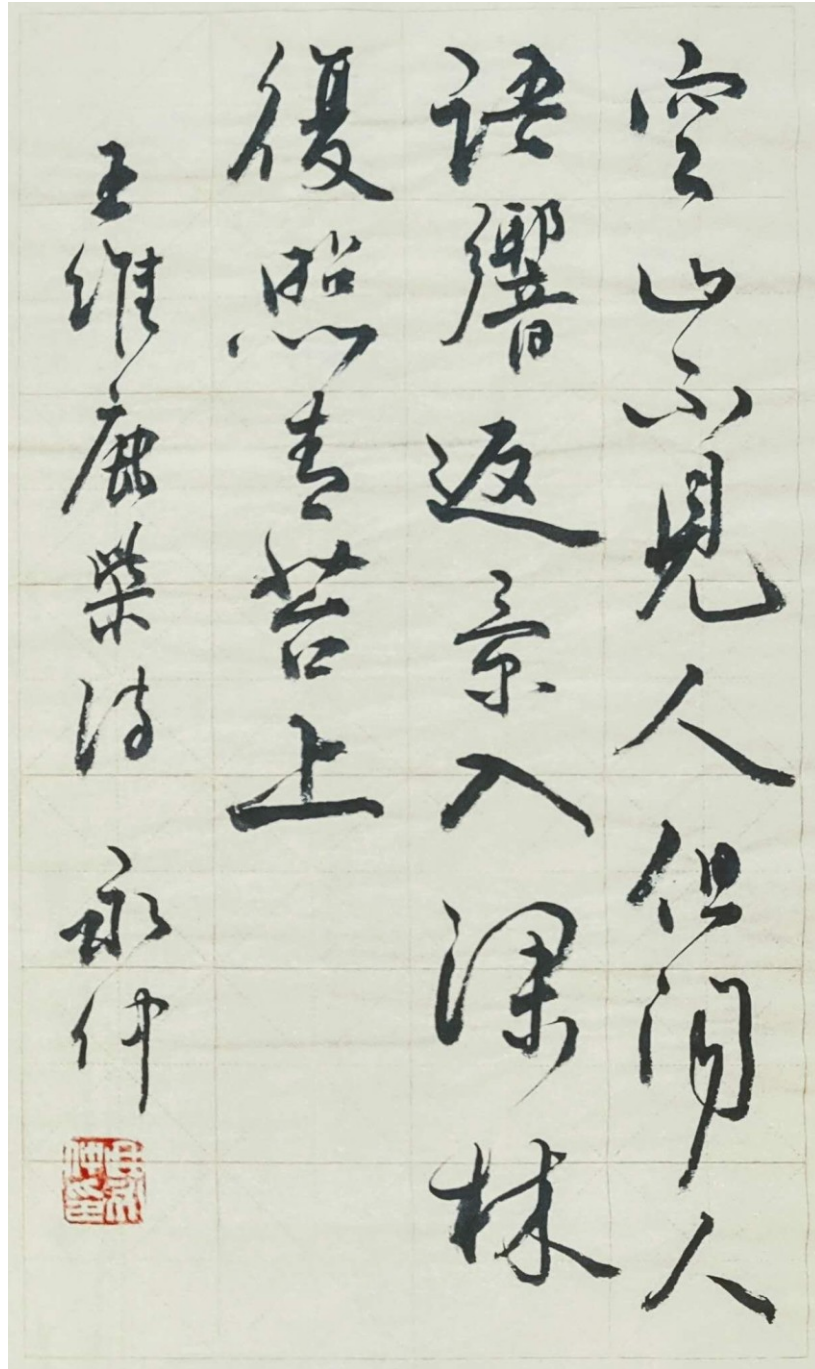 空山不見人但聞人
語響返景入深林
復照青苔上
王維鹿柴詩 永仲